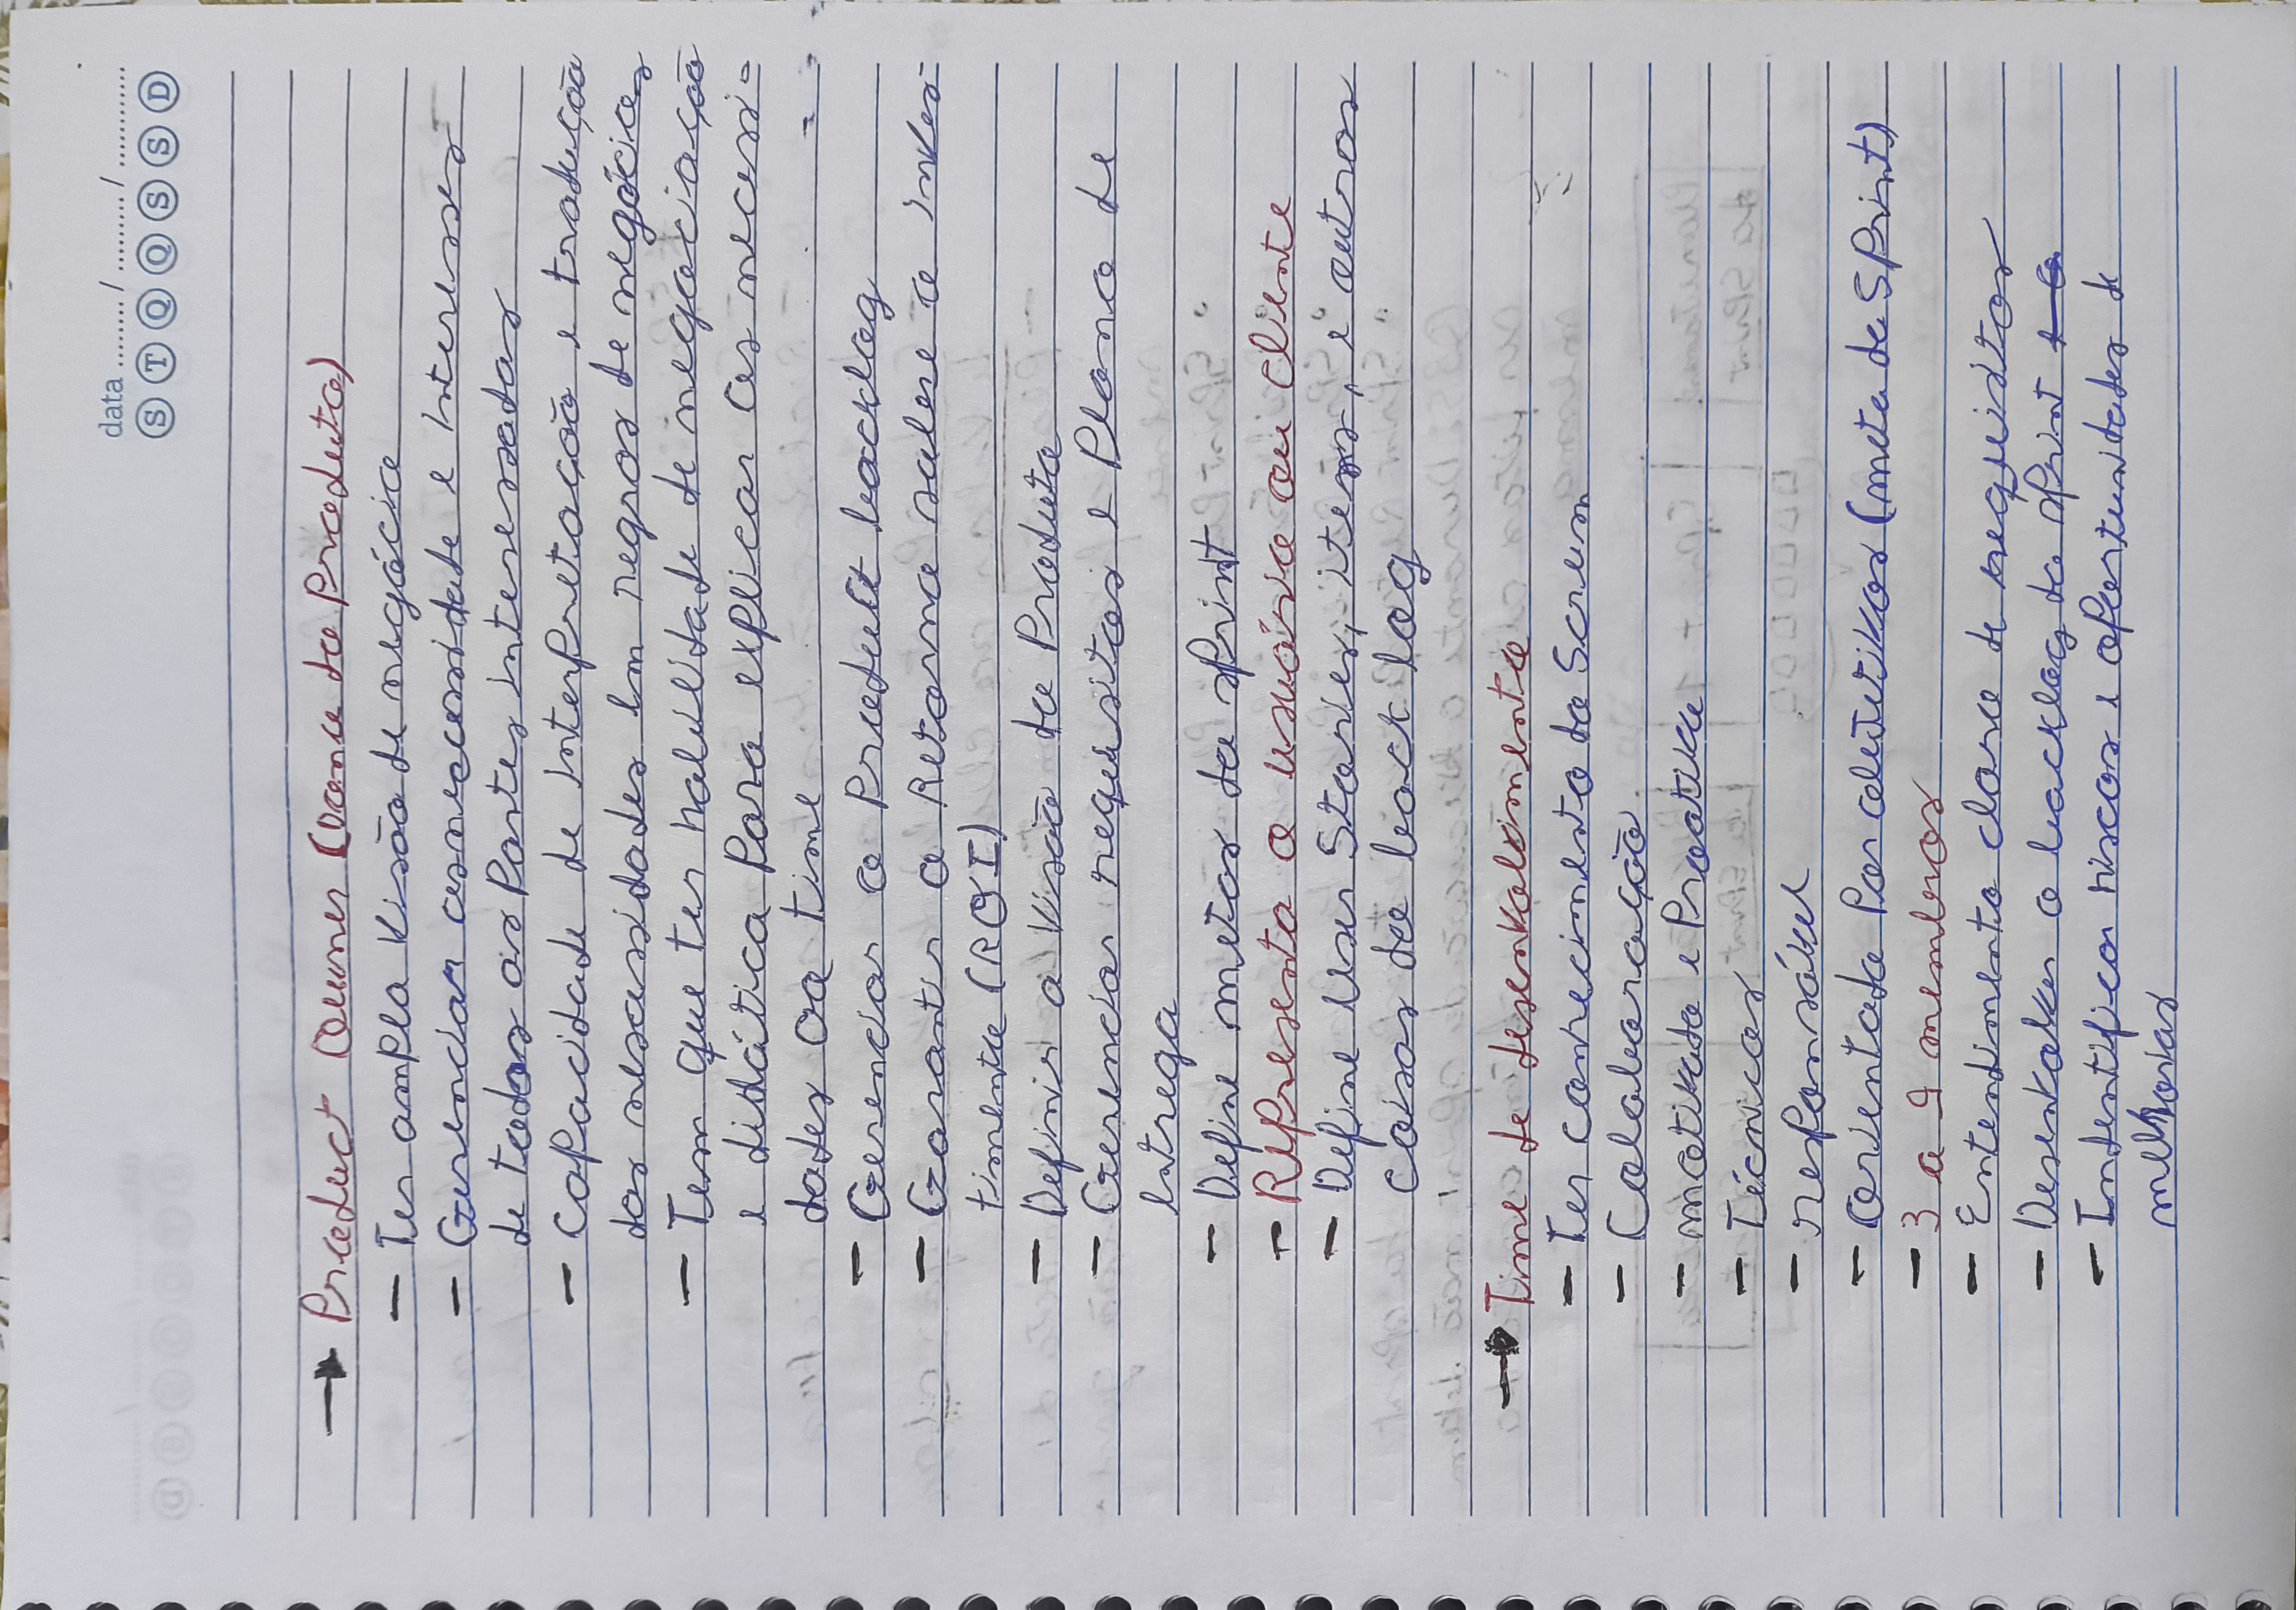 data ........ / ......... / ............
S T Q Q S S D
→ Product Owner (Dono do Produto)
- Ter ampla visão de negócio
- Gerenciar as necessidade e interesses
de todas as Partes interessadas
- Capacidade de interpretação e tradução
das nesessidades em regras de negócios
- Tem que ter habilidade de negociação
e didática Para explicar as necessi-
dades ao time
- Gerenciar o Product backlog
- Garantir o Retorno sobre o inves-
timento (ROI)
- Definir a visão do Produto
- Gerenciar requisitos e Plano de
entrega
- Define metas da sprint
- Representa o usuário ou cliente
- Define User Stories, itens, e outros
coisas do back log
→ Time de desenvolvimento
- Ter conhecimento do Scrum
- Colaboração
- motivado e Proativo
- Técnicos
- responsável
- Orientado Por objetivos (meta da SPrint)
- 3 a 9 membros
- Entendimento claro de requisitos
- Desenvolver o backlog da sprint
- Indentificar riscos e oportunidades de
melhorias